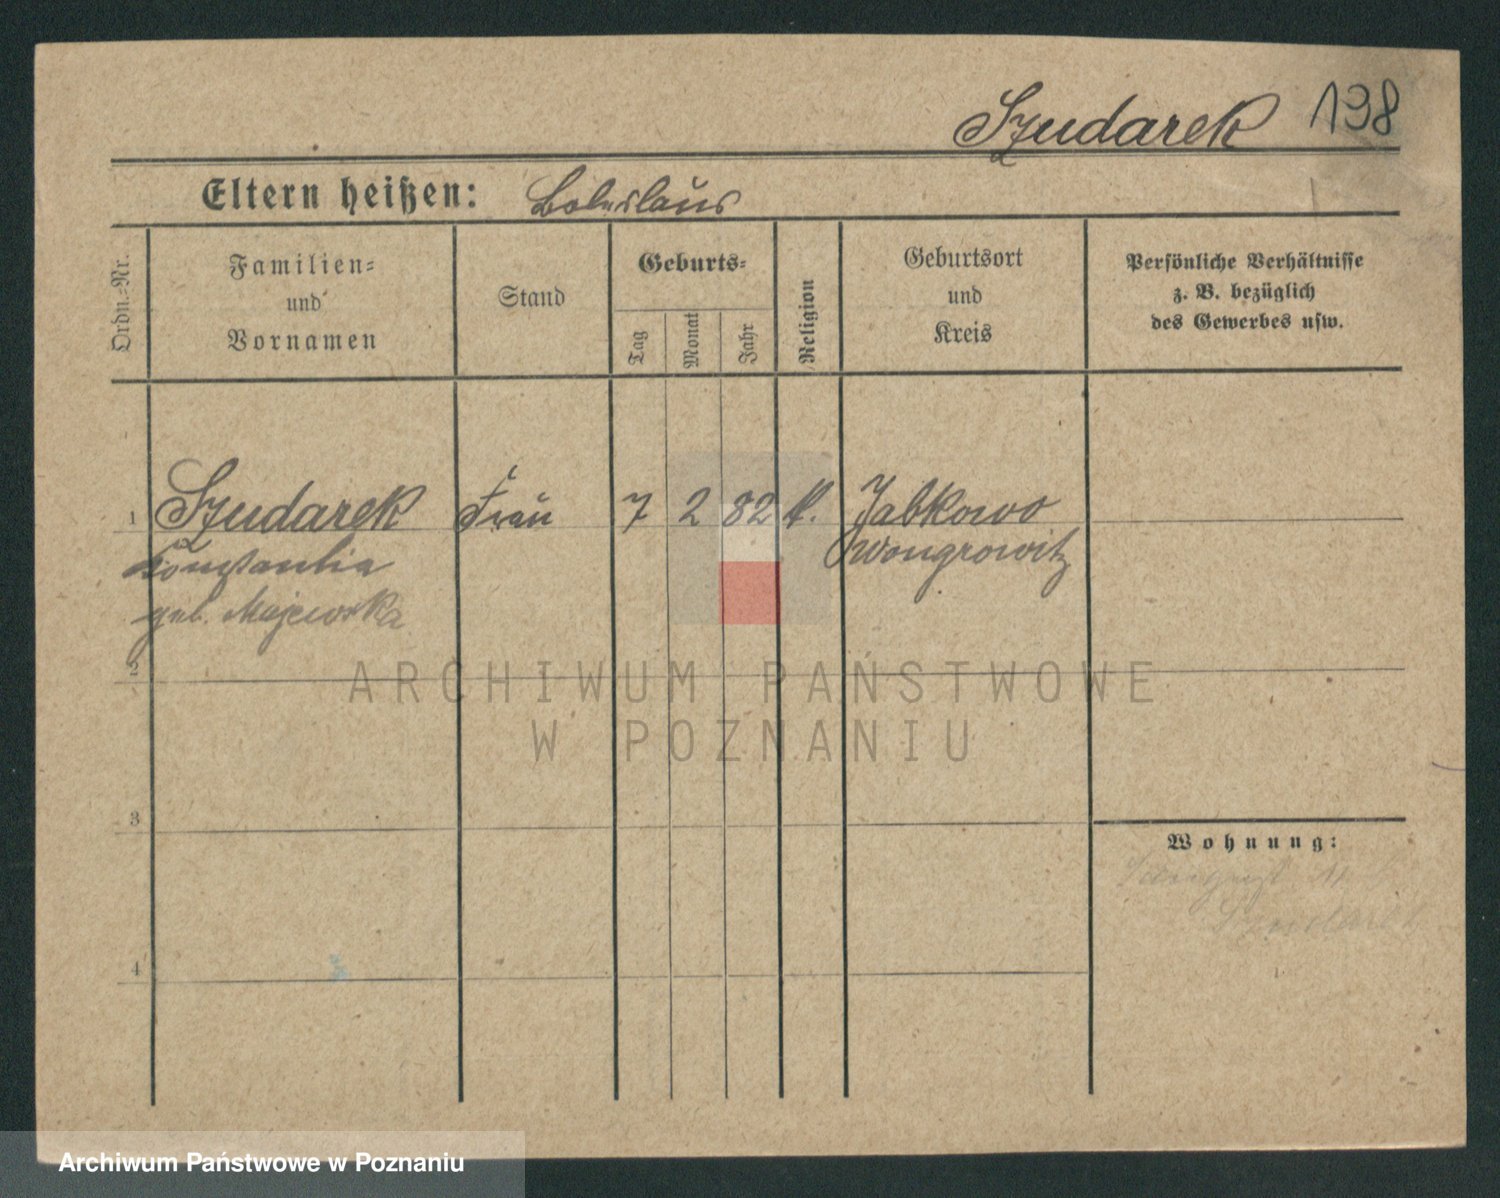 Szudarek 198
Eltern heißen: Boleslaus
Ordn.-Nr.
Familien-
und
Vornamen
Stand
Geburts-
Tag
Monat
Jahr
Religion
Geburtsort
und
Kreis
Persönliche Verhältnisse
z. B. bezüglich
des Gewerbes usw.
1 Szudarek Frau 7 2 82 k. Jabkowo
Konstantia Wongrowitz
geb. Majewska
2
ARCHIWUM PAŃSTWOWE
W POZNANIU
3
Wohnung:
Szudarek
4
Archiwum Państwowe w Poznaniu